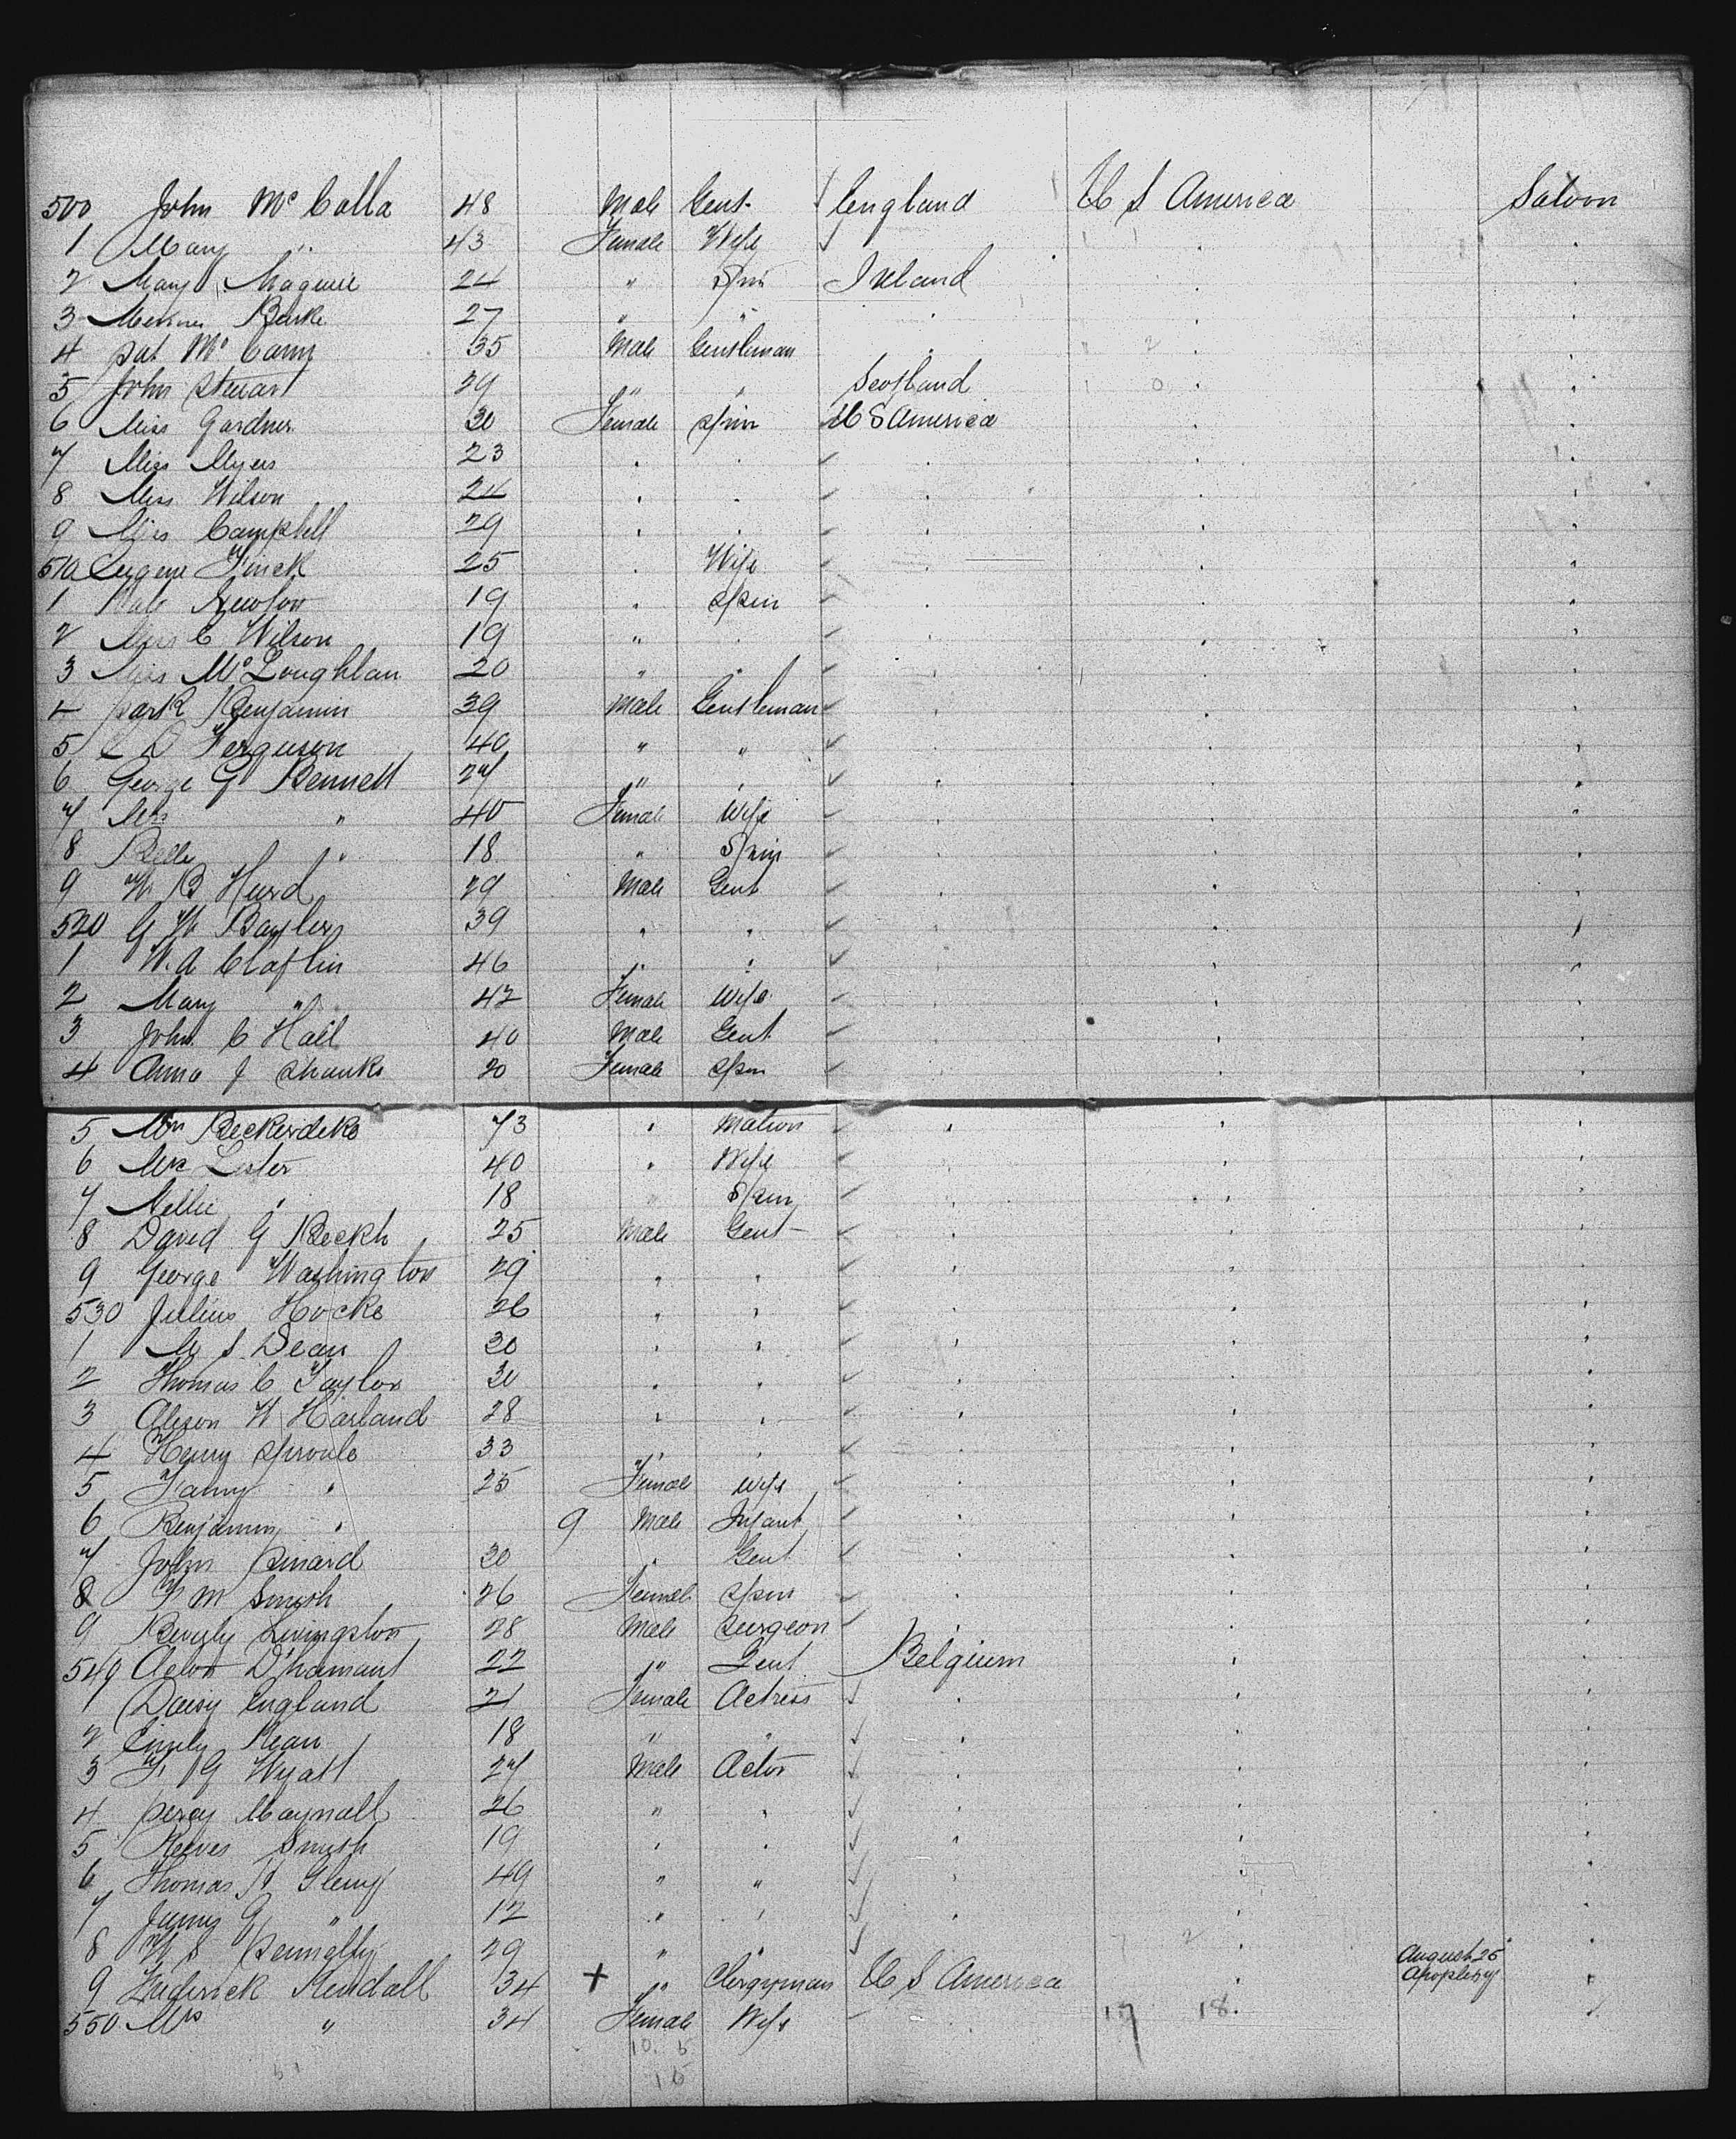 500 John McCalla 48 Male Gent. England U S America Saloon
1 Mary " 43 Female Wife
2 Mary Maguire 24 " Spin Ireland
3 Burke 27 " "
4 Pat McCann 35 Male Gentleman
5 John Stewart 29 " " Scotland
6 Miss Gardner 30 Female Spin U S America
7 Miss Myers 23
8 Miss Wilson 24
9 Miss Campbell 29
510 Eugene Finck 25 Wife
1 Newton 19 Spin
2 Miss C Wilson 19 "
3 Miss McLoughlan 20 "
4 Park Benjamin 39 Male Gentleman
5 E D Ferguson 40 " "
6 George G Bennett 27 "
7 Mrs " 40 Female Wife
8 Belle " 18 " Spin
9 W B Hurd 29 Male Gent
520 G W Baylor 39 " "
1 W. A Claflin 46 " "
2 Mary " 42 Female Wife
3 John C Hall 40 Male Gent
4 Anna J Shanks 20 Female Spin
5 Mrs Beckerdeke 73 " Matron
6 Mrs Lester 40 " Wife
7 Nellie " 18 " Spin
8 David G 25 Male Gent
9 George Washington 29 " "
530 Julius Hocke 26 " "
1 M S Dean 30 " "
2 Thomas C Taylor 30 " "
3 W Harland 28 " "
4 Henry Sproule 33 " "
5 Fanny " 25 Female Wife
6 Benjamin " 9 Male Infant
7 John Pinard 30 " Gent
8 F M Smith 26 Female Spin
9 Beverly Livingston 28 Male Surgeon
540 D'hamant 22 " Gent Belgium
1 Daisy England 21 Female Actress
2 Emily Kean 18 " "
3 F G Wyatt 27 Male Actor
4 Percy 26 " "
5 Reeves Smith 19 " "
6 Thomas H Glenny 49 " "
7 G " 12 " "
8 W S Pennelly 29 " "
9 Frederick Kendall 34 + " Clergyman U S America August 25 Apoplexy
550 Mrs " 34 Female Wife 17 18
10. 5
15